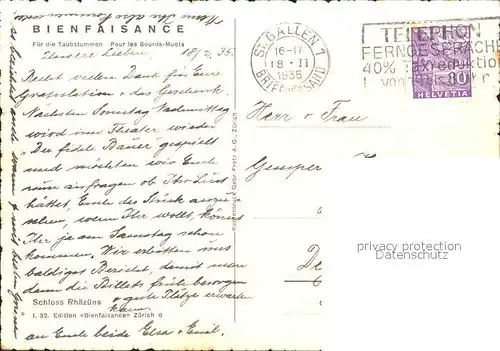 BIENFAISANCE
Für die Taubstummen Pour les Sourds-Muets
Unsere Lieben 18/2. 35.
Recht vielen Dank für Eure
Gratulation & das Geschenk.
Nächsten Sonntag Nachmittag
wird im Theater wieder
"Der fidele Bauer" gespielt
und möchten wir Euch
nun anfragen ob Ihr Lust
hättet, Euch das Stück anzu-
sehen, wenn Ihr wollt, könnt
Ihr ja am Samstag schon
kommen. Wir erbitten uns
baldigen Bericht, damit man
dann die Billets früh besorgen
& gute Plätze erwarten
kann.
an Euch beide Elsa & Emil.
Schloss Rhäzüns
I. 32. Edition «Bienfaisance» Zürich 8
Kupferdruck Gebr. Fretz A. G., Zürich
ST. GALLEN 1
16-17
18. II
1935
BRIEFVERSAND
TELEPHON
FERNGESPRÄCHE
40% Taxreduktion
von
HELVETIA
Herr & Frau
Gemper
De
privacy protection
Datenschutz